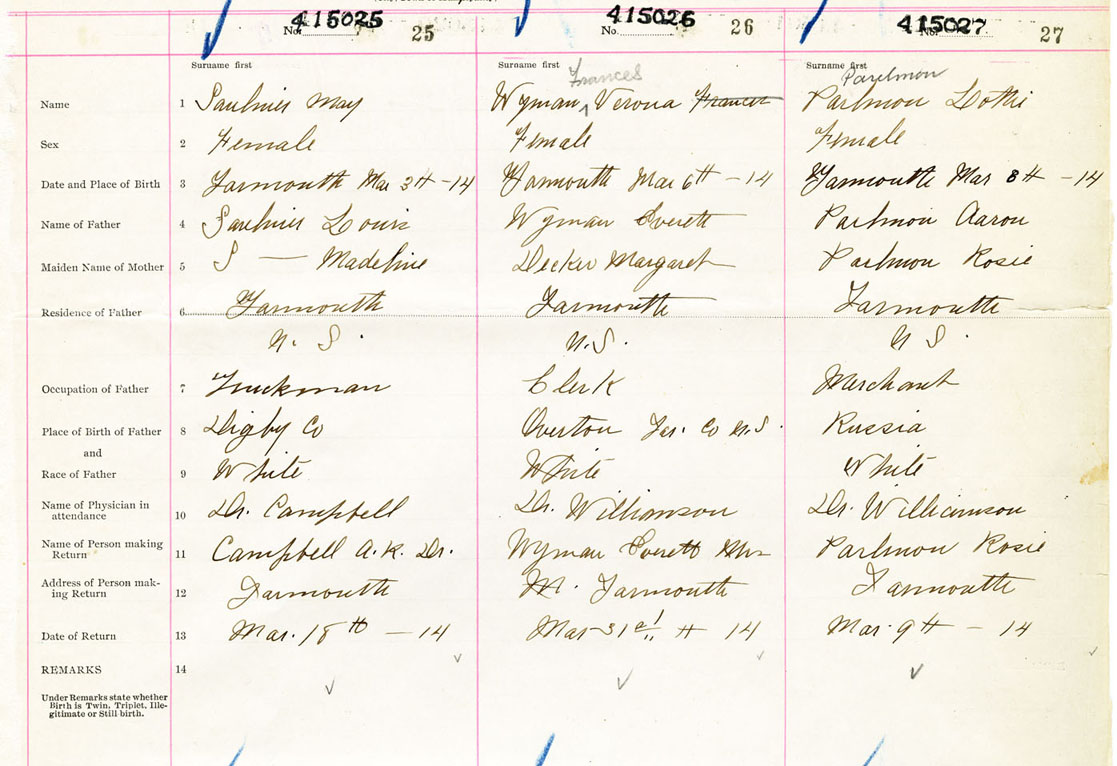 415025 415026 415027
No. 25 No. 26 No. 27
Surname first Surname first Surname first
Frances Parelmon
Name 1 Saulnier May Wyman ^ Verona Frances Parlmon Dothie
Sex 2 Female Female Female
Date and Place of Birth 3 Yarmouth Mar 3th -14 Yarmouth Mar 6th -14 Yarmouth Mar 8th -14
Name of Father 4 Saulnier Louis Wyman Everett Parlmon Aaron
Maiden Name of Mother 5 S — Madeline Decker Margaret Parlmon Rosie
Residence of Father 6 Yarmouth Yarmouth Yarmouth
N. S. N.S. N S.
Occupation of Father 7 Truckman Clerk Merchant
Place of Birth of Father 8 Digby Co Overton Yar. Co N.S. Russia
and
Race of Father 9 White White White
Name of Physician in
attendance 10 Dr. Campbell Dr. Williamson Dr. Williamson
Name of Person making
Return 11 Campbell A.R. Dr. Wyman Everett Mrs Parlmon Rosie
Address of Person mak-
ing Return 12 Yarmouth Yarmouth Yarmouth
Date of Return 13 Mar. 18th — 14 Mar 31st 14 Mar. 9th - 14
REMARKS 14
Under Remarks state whether
Birth is Twin, Triplet, Ille-
gitimate or Still birth.